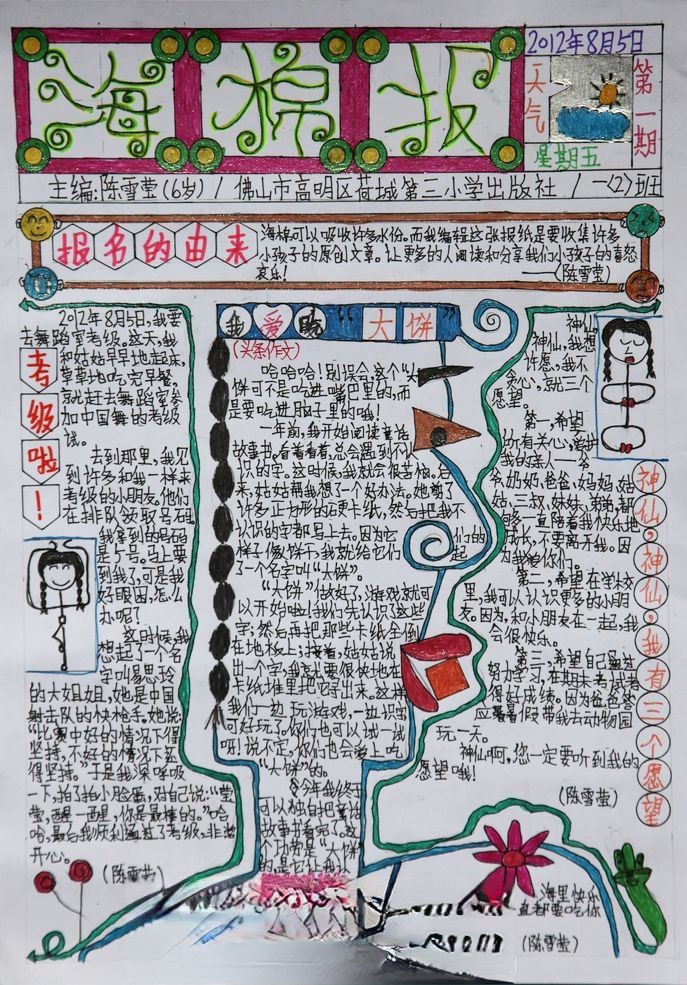 海棉报
2012年8月5日
天气
星期五
第一期
主编:陈雪莹(6岁)/佛山市高明区荷城第三小学出版社/一〈2〉班
报名的由来
海棉可以吸收许多水份。而我编辑这张报纸是要收集许多
小孩子的原创文章。让更多的人阅读和分享我们小孩子的喜怒
哀乐!
——(陈雪莹)
考级啦!
2012年8月5日,我要
去舞蹈室考级。这天,我
和姑姑早早地起来,
草草地吃完早餐,
就赶去舞蹈室参
加中国舞的考级
试。
去到那里,我见
到许多和我一样来
考级的小朋友。他们
在排队领取号码
我拿到的号码
是5号。马上要
到我了,可是我
好眼困,怎么
办呢?
这时候,我
想起了一个名
字叫易思玲
的大姐姐,她是中国
射击队的快枪手。她说:
“比赛中好的情况下得
坚持,不好的情况下更
得坚持。”于是我深呼吸
一下,拍了拍小脸蛋,对自己说:“莹
莹,醒一醒,你是最棒的。”哈哈
哈,最后我顺利通过了考级,非常
开心。
(陈雪莹)
我爱吃“大饼”
(头条作文)
哈哈哈!别误会这个“大
饼可不是吃进嘴巴里的,而
是要吃进脑子里的哦!
一年前,我开始阅读童话
故事书。看着看着,总会遇到不
识的字。这时候,我就会很苦恼。后
来,姑姑帮我想了一个好办法。她剪了
许多正方形的硬卡纸,然后把我不
认识的字都写上去。因为它们的
样子像饼干,我就给它们起
了一个名字叫“大饼”。
“大饼”做好了,游戏就可
以开始啦!我们先认识这些
字,然后再把那些卡纸全倒
在地板上;接着,姑姑说
出一个字,我就要很快地在
卡纸堆里把它寻出来。这样
我们一边玩游戏,一边识字
可好玩了。你们也可以试一试
呀!说不定,你们也会爱上吃
“大饼”的。
今年我终于
可以独自把童话
故事书看完了。这
个功劳是“大饼”
的是它让我认
神仙,神仙,我有三个愿望
神仙,
神仙,我想
许愿,我不
贪心,就三个
愿望。
第一,希望
所有关心,爱护
我的亲人——爷
爷、奶奶、爸爸、妈妈、姑
姑、三叔、妹妹、弟弟,都
够一直陪着我快乐地
成长,不要离开我。因
为我爱你们。
第二,希望在学校
里,我可以认识更多的小朋
友。因为,和小朋友在一起,我
会很快乐。
第三,希望自己通过
努力学习,在期末考试考
得好成绩。因为爸爸答
应暑假带我去动物园
玩一天。
神仙啊,您一定要听到我的
愿望哦!
(陈雪莹)
海里快乐
都要吃你
(陈雪莹)